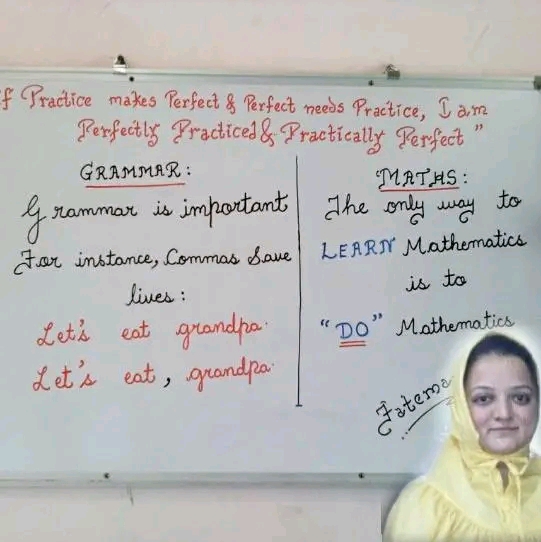 If Practice makes Perfect & Perfect needs Practice, I am
Perfectly Practiced & Practically Perfect"
GRAMMAR:
Grammar is important
For instance, Commas Save
lives:
Let's eat grandpa.
Let's eat, grandpa.
MATHS:
The only way to
LEARN Mathematics
is to
"DO" Mathematics
Fatema